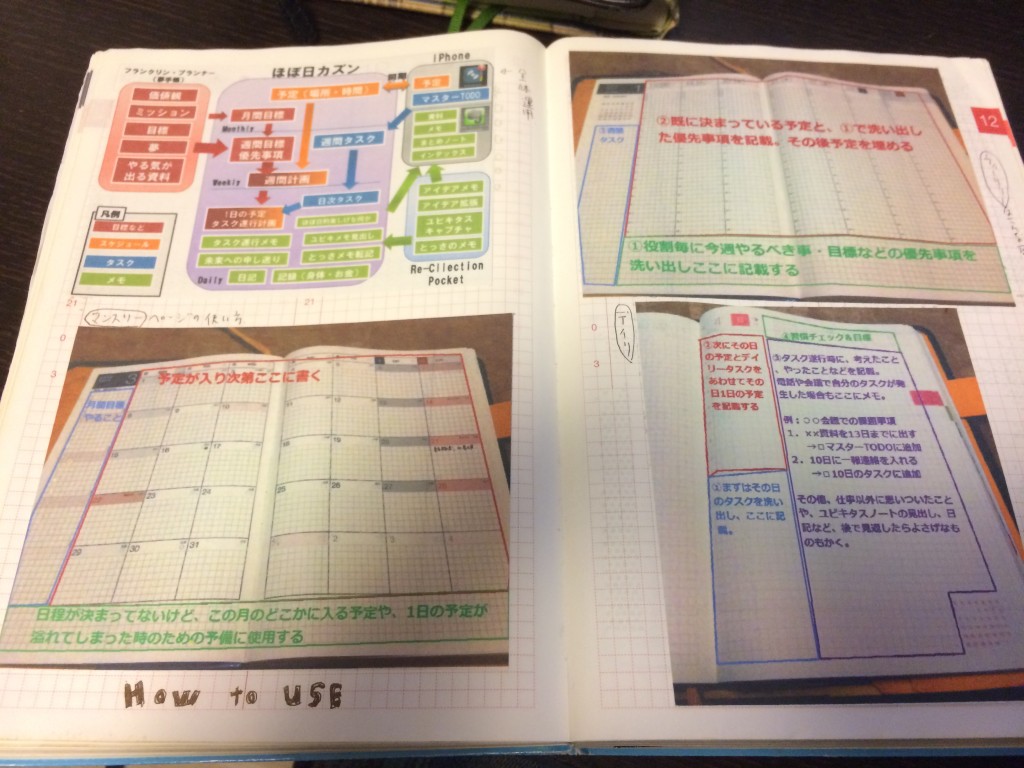 フランクリン・プランナー
(夢手帳)
価値観
ミッション
目標
夢
やる気が
出る資料
凡例
目標など
スケジュール
タスク
メモ
ほぼ日カズン
予定（場所・時間）
月間目標
Monthly
週間目標
優先事項
週間タスク
Weekly
週間計画
日次タスク
1日の予定
タスク遂行計画
タスク遂行メモ
ユビキメモ見出し
未来への申し送り
とっさのメモ転記
Daily
日記
記録（身体・お金）
同期
iPhone
予定
マスターTODO
資料
メモ
まとめノート
インデックス
アイデアメモ
アイデア拡張
ユビキタス
キャプチャ
とっさのメモ
Re-Cllection
Pocket
21
21
マンスリー ページの使い方
0
3
3
予定が入り次第ここに書く
月間目標
やること
16
17
18
19
20
23
24
25
26
27
29
30
31
1
2
3
日程が決まってないけど、この月のどこかに入る予定や、1日の予定が
溢れてしまった時のための予備に使用する
HOW to USE
12
1
①週間
タスク
②既に決まっている予定と、①で洗い出し
た優先事項を記載。その後予定を埋める
①役割毎に今週やるべき事・目標などの優先事項を
洗い出しここに記載する
デイリー
0
3
②次にその日
の予定とデイ
リータスクを
あわせてその
日1日の予定
を記載する
①まずはその日
のタスクを洗い
出し、ここに記
載。
④習慣チェック＆目標
③タスク遂行毎に、考えたこと、
やったことなどを記載。
電話や会議で自分のタスクが発
生した場合もここにメモ。
例：○○会議での宿題事項
1．××資料を13日までに出す
→□マスターTODOに追加
2．10日に一報連絡を入れる
→□10日のタスクに追加
その他、仕事以外に思いついたこと
や、ユビキタスノートの見出し、日
記など、後で見返したらよさげなも
のもかく。